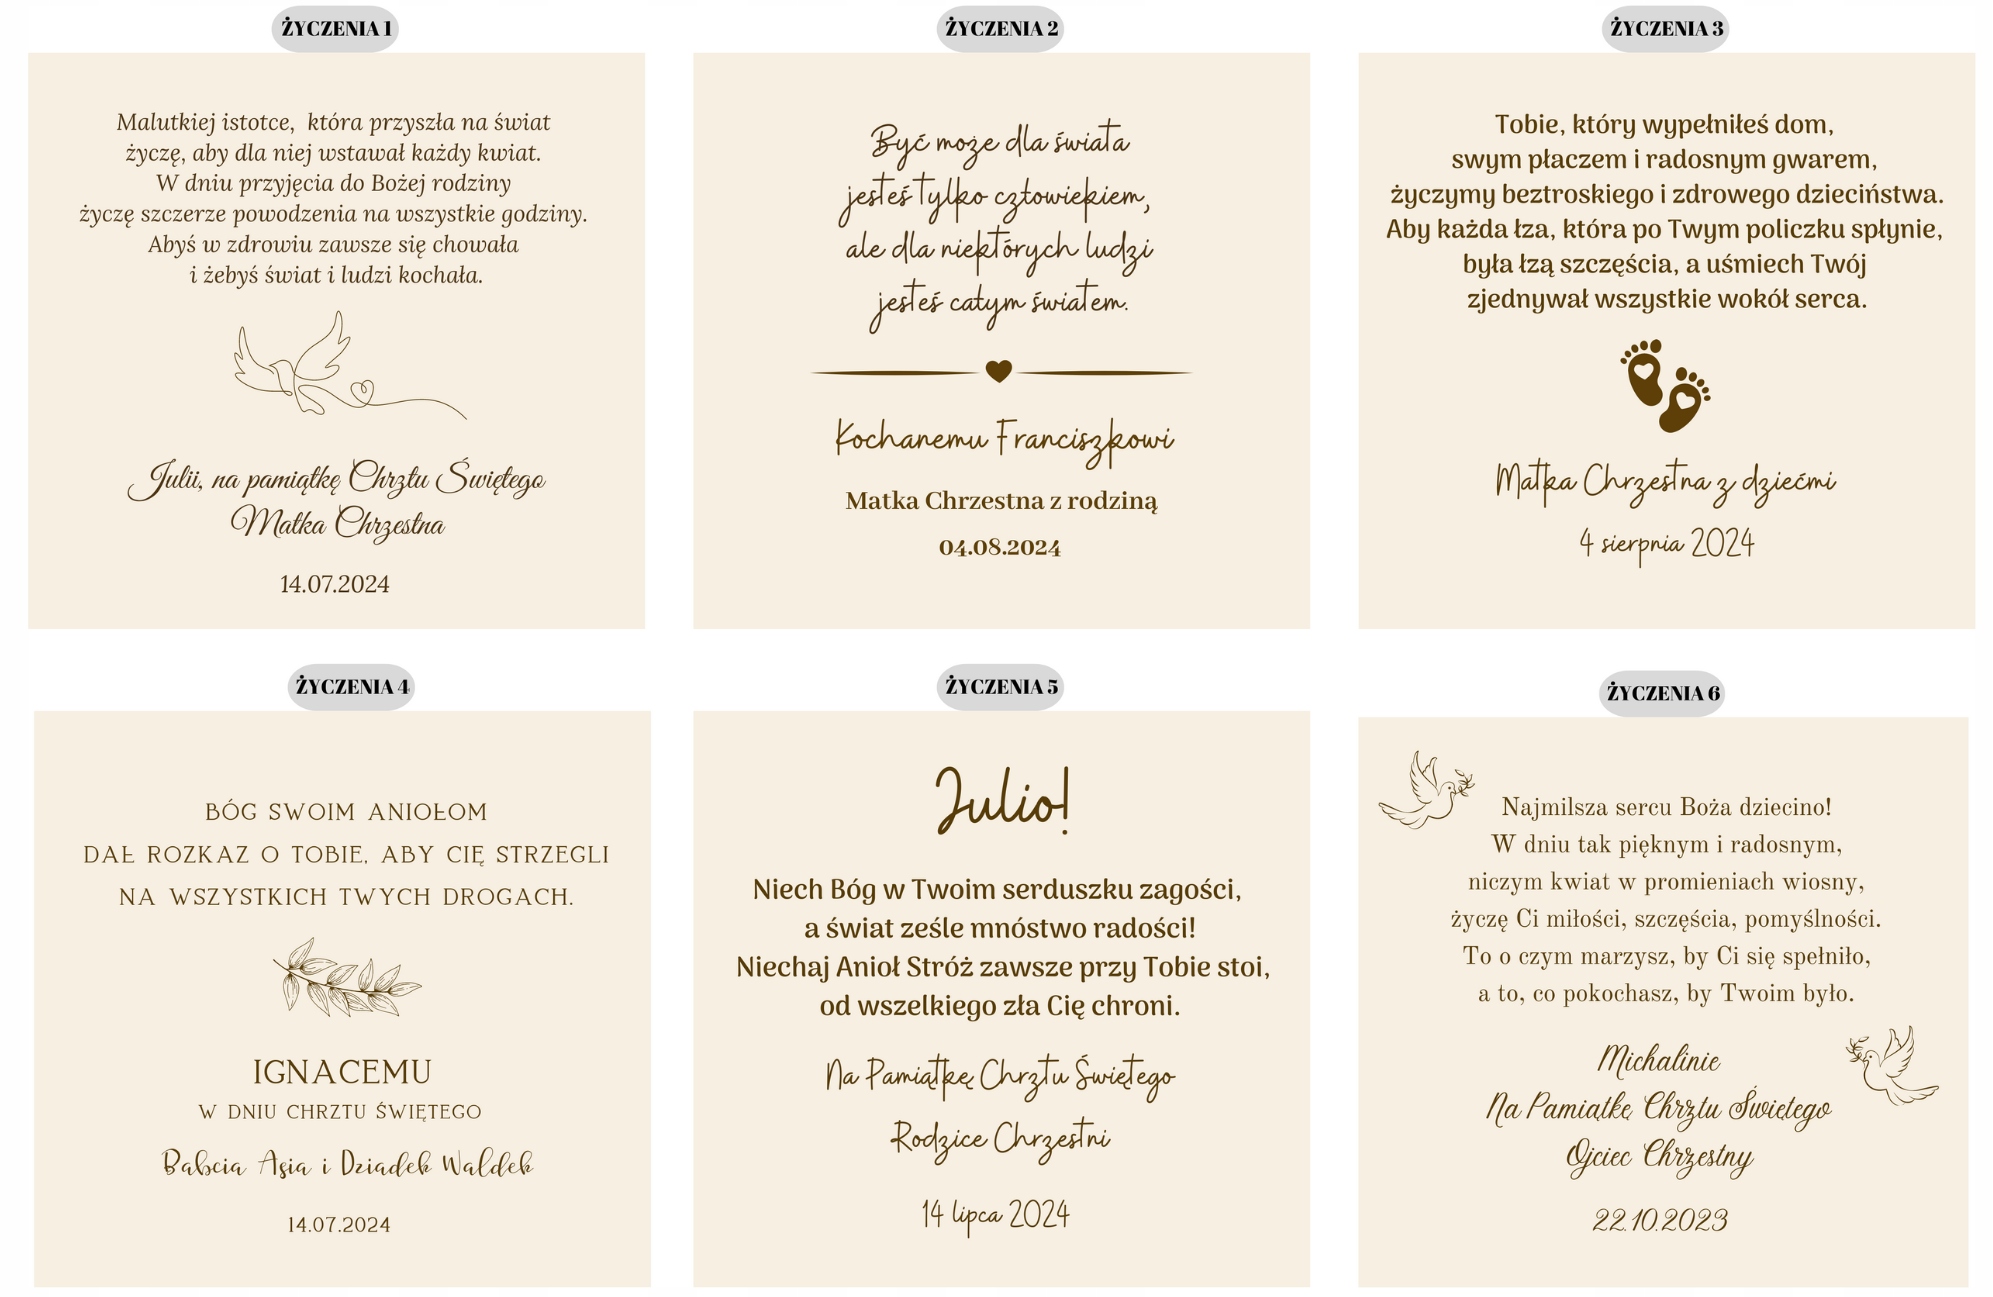 ŻYCZENIA 1
Malutkiej istotce, która przyszła na świat
życzę, aby dla niej wstawał każdy kwiat.
W dniu przyjęcia do Bożej rodziny
życzę szczerze powodzenia na wszystkie godziny.
Abyś w zdrowiu zawsze się chowała
i żebyś świat i ludzi kochała.
Julii, na pamiątkę Chrztu Świętego
Matka Chrzestna
14.07.2024
ŻYCZENIA 2
Być może dla świata
jesteś tylko człowiekiem,
ale dla niektórych ludzi
jesteś całym światem.
Kochanemu Franciszkowi
Matka Chrzestna z rodziną
04.08.2024
ŻYCZENIA 3
Tobie, który wypełniłeś dom,
swym płaczem i radosnym gwarem,
życzymy beztroskiego i zdrowego dzieciństwa.
Aby każda łza, która po Twym policzku spłynie,
była łzą szczęścia, a uśmiech Twój
zjednywał wszystkie wokół serca.
Matka Chrzestna z dziećmi
4 sierpnia 2024
ŻYCZENIA 4
BÓG SWOIM ANIOŁOM
DAŁ ROZKAZ O TOBIE, ABY CIĘ STRZEGLI
NA WSZYSTKICH TWYCH DROGACH.
IGNACEMU
W DNIU CHRZTU ŚWIĘTEGO
Babcia Asia i Dziadek Waldek
14.07.2024
ŻYCZENIA 5
Julio!
Niech Bóg w Twoim serduszku zagości,
a świat ześle mnóstwo radości!
Niechaj Anioł Stróż zawsze przy Tobie stoi,
od wszelkiego zła Cię chroni.
Na Pamiątkę Chrztu Świętego
Rodzice Chrzestni
14 lipca 2024
ŻYCZENIA 6
Najmilsza sercu Boża dziecino!
W dniu tak pięknym i radosnym,
niczym kwiat w promieniach wiosny,
życzę Ci miłości, szczęścia, pomyślności.
To o czym marzysz, by Ci się spełniło,
a to, co pokochasz, by Twoim było.
Michalinie
Na Pamiątkę Chrztu Świetego
Ojciec Chrzestny
22.10.2023